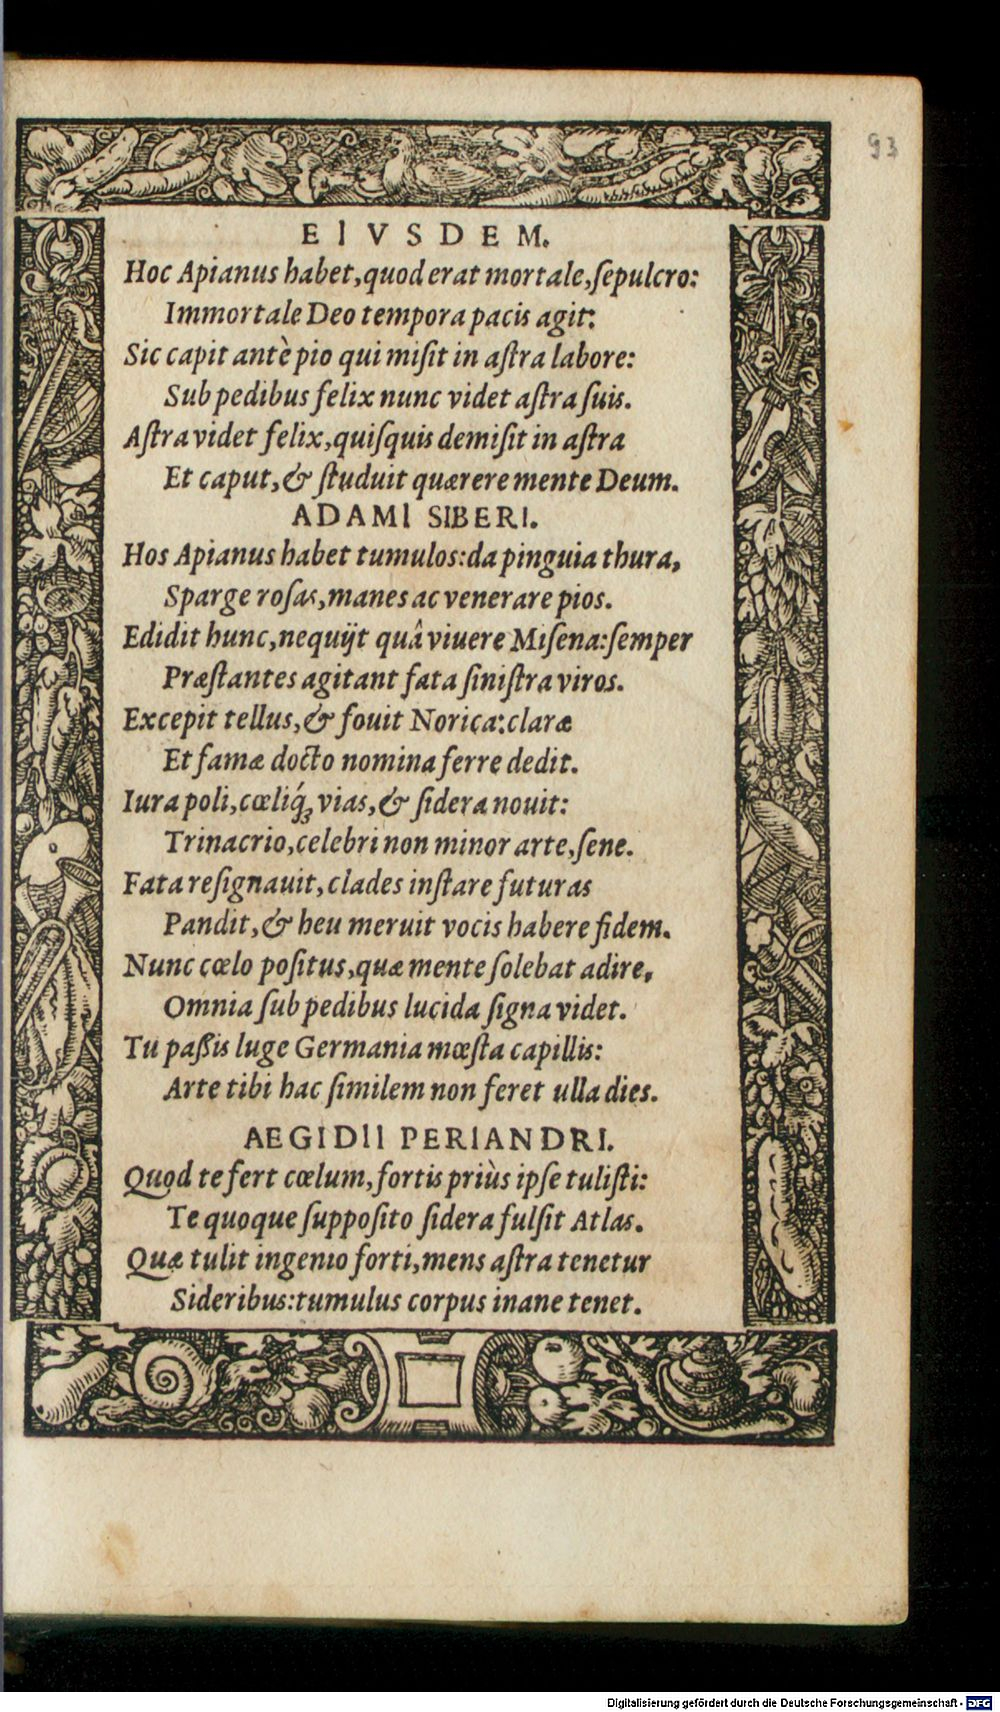 93
EIVSDEM.
Hoc Apianus habet, quod erat mortale, ſepulcro:
Immortale Deo tempora pacis agit:
Sic capit antè pio qui miſit in aſtra labore:
Sub pedibus felix nunc videt aſtra ſuis.
Aſtra videt felix, quiſquis demiſit in aſtra
Et caput, & ſtuduit quærere mente Deum.
ADAMI SIBERI.
Hos Apianus habet tumulos: da pinguia thura,
Sparge roſas, manes ac venerare pios.
Edidit hunc, nequijt quâ viuere Miſena: ſemper
Præſtantes agitant fata ſiniſtra viros.
Excepit tellus, & fouit Norica: claræ
Et famæ docto nomina ferre dedit.
Iura poli, cœliq́ꝫ vias, & ſidera nouit:
Trinacrio, celebri non minor arte, ſene.
Fata reſignauit, clades inſtare futuras
Pandit, & heu meruit vocis habere fidem.
Nunc cœlo poſitus, quæ mente ſolebat adire,
Omnia ſub pedibus lucida ſigna videt.
Tu paßis luge Germania mœſta capillis:
Arte tibi hac ſimilem non feret ulla dies.
AEGIDII PERIANDRI.
Quod te fert cœlum, fortis priùs ipſe tuliſti:
Te quoque ſuppoſito ſidera fulſit Atlas.
Quæ tulit ingenio forti, mens aſtra tenetur
Sideribus: tumulus corpus inane tenet.
Digitalisierung gefördert durch die Deutsche Forschungsgemeinschaft - DFG